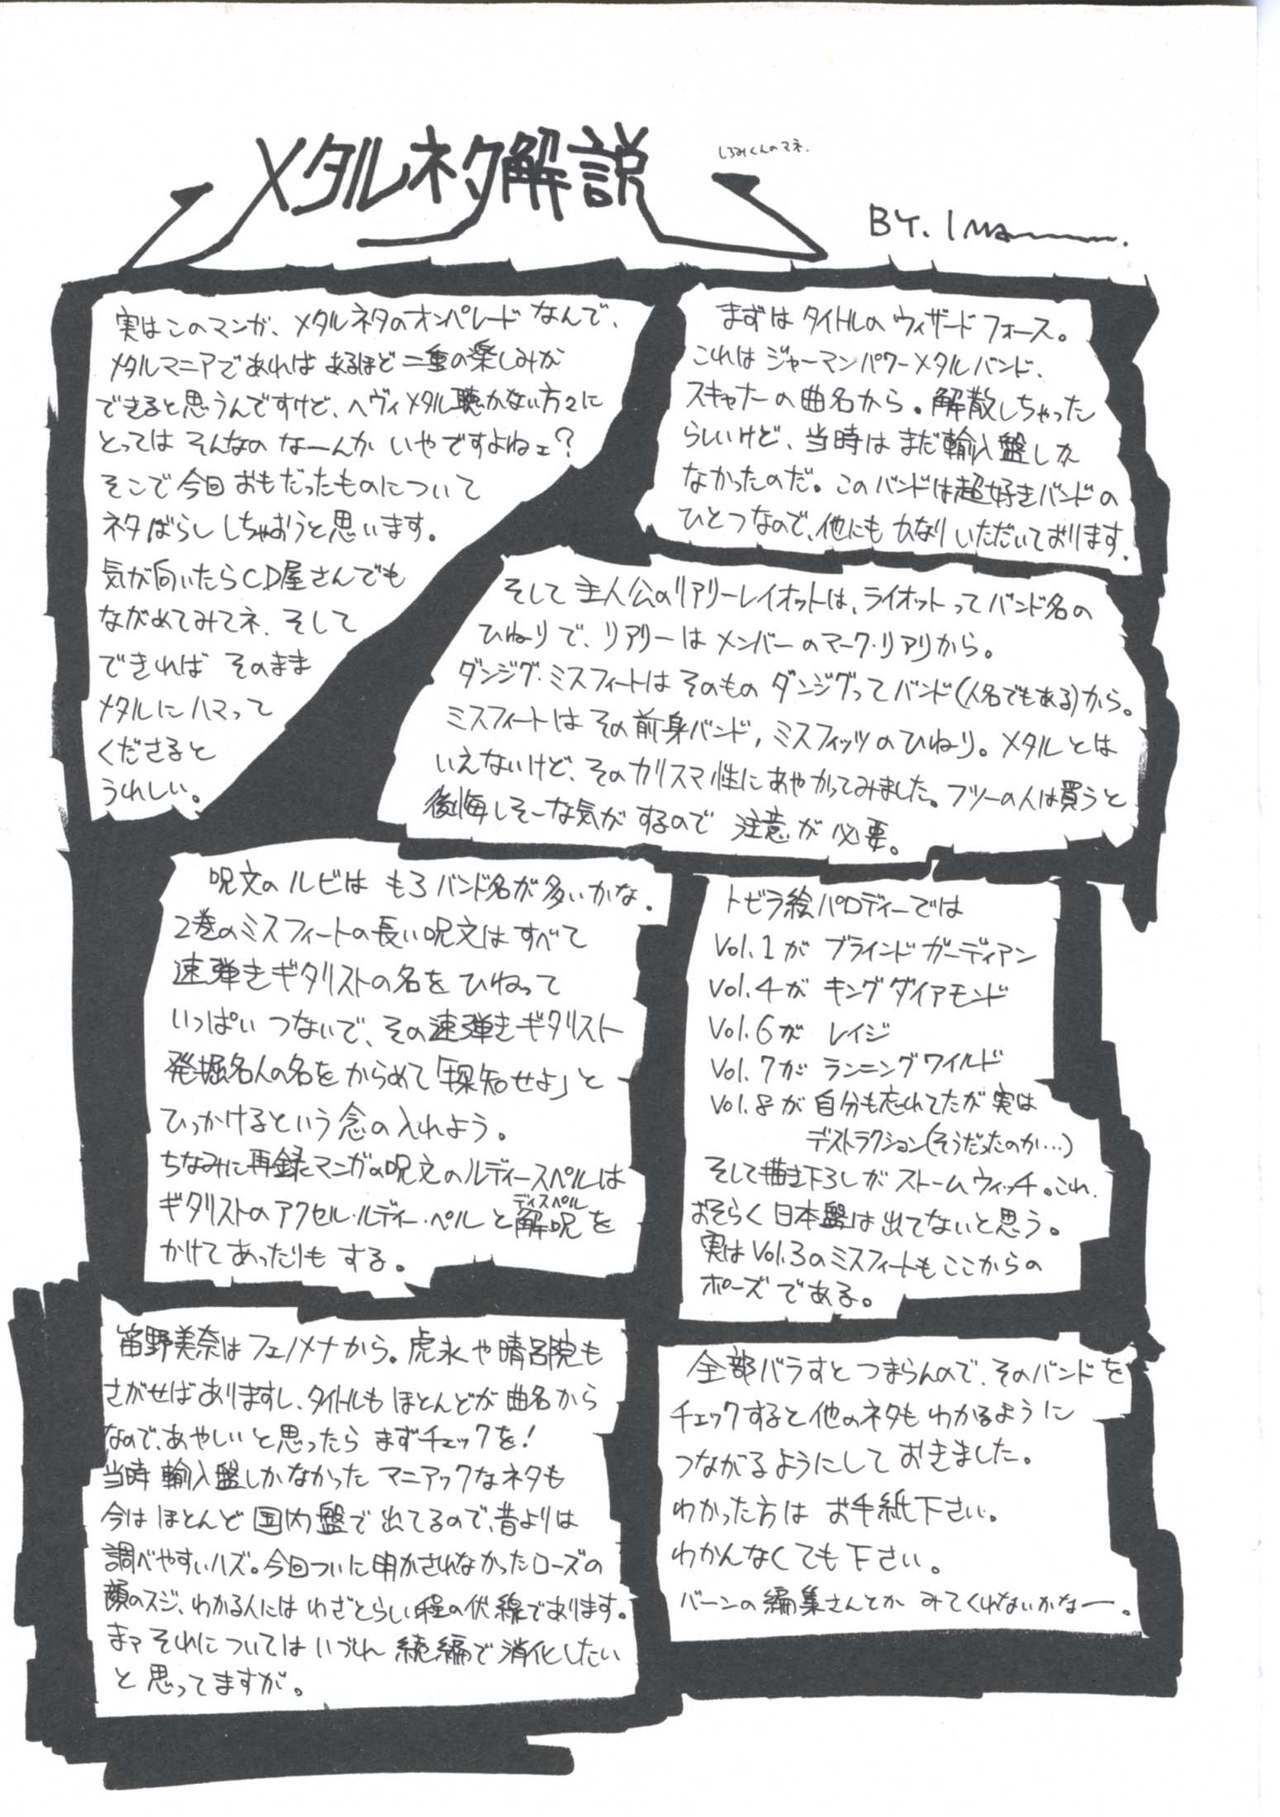 メタルネタ解説
しろみくんのマネ.
BY. Ima
実はこのマンガ、メタルネタのオンパレードなんで、
メタルマニアであればあるほど二重の楽しみが
できると思うんですけど、ヘヴィメタル聴かない方々に
とってはそんなのなーんかいやですよねェ?
そこで今回おもだったものについて
ネタばらししちゃおうと思います。
気が向いたらCD屋さんでも
ながめてみてネ.そして
できればそのまま
メタルにハマって
くださると
うれしい。
まずはタイトルのウィザードフォース。
これはジャーマンパワーメタルバンド、
スキャナーの曲名から。解散しちゃった
らしいけど、当時はまだ輸入盤しか
なかったのだ。このバンドは超好きバンドの
ひとつなので、他にもかなりいただいております.
そして主人公のリアリーレイオットは、ライオットってバンド名の
ひねりで、リアリーはメンバーのマーク・リアリから。
ダンジグ・ミスフィートはそのものダンジグってバンド(人名でもある)から。
ミスフィートはその前身バンド,ミスフィッツのひねり。メタルとは
いえないけど、そのカリスマ性にあやかってみました。フツーの人は買うと
後悔しそーな気がするので注意が必要。
呪文のルビはもろバンド名が多いかな.
2巻のミスフィートの長い呪文はすべて
速弾きギタリストの名をひねって
いっぱいつないで、その速弾きギタリスト
発掘名人の名をからめて「探知せよ」と
ひっかけるという念の入れよう。
ちなみに再録マンガの呪文のルディースペルは
ギタリストのアクセル・ルディー・ペルと解呪を
ディスペル
かけてあったりもする。
トビラ絵パロディーでは
Vol.1が ブラインドガーディアン
Vol.4が キングダイアモンド
Vol.6が レイジ
Vol.7が ランニングワイルド
Vol.8が 自分も忘れてたが実は
デストラクション(そうだったのか…)
そして描き下ろしがストームウィッチ。これ、
おそらく日本盤は出てないと思う。
実はVol.3のミスフィートもここからの
ポーズである。
笛野美奈はフェノメナから。虎永や晴呂院も
さがせばありますし、タイトルもほとんどが曲名から
なので、あやしいと思ったらまずチェックを!
当時輸入盤しかなかったマニアックなネタも
今はほとんど国内盤で出てるので、昔よりは
調べやすいハズ。今回ついに明かされなかったローズの
顔のスジ、わかる人にはわざとらしい程の伏線であります。
まァそれについてはいづれ続編で消化したい
と思ってますが。
全部バラすとつまらんので、そのバンドを
チェックすると他のネタもわかるように
つながるようにしておきました。
わかった方はお手紙下さい。
わかんなくても下さい。
バーンの編集さんとかみてくれないかなー。